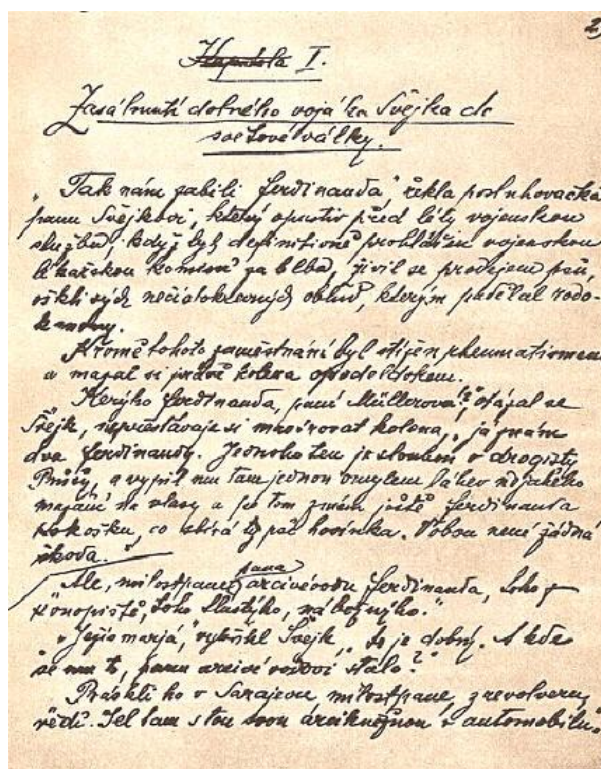 2)
Kapitola I.
Zasáhnutí dobrého vojáka Švejka do
světové války.
„Tak nám zabili Ferdinanda," řekla posluhovačka
panu Švejkovi, který opustiv před léty vojenskou
službu, když byl definitivně prohlášen vojenskou
lékařskou komisí za blba, živil se prodejem psů,
ošklivých nečistokrevných oblud, kterým padělal rodo-
kmeny.
Kromě tohoto zaměstnání byl stižen rheumatismem
a mazal si právě kolena opodeldokem.
„Kerýho Ferdinanda, paní Müllerová?" otázal se
Švejk, nepřestávaje si masírovat kolena, „já znám
dva Ferdinandy. Jednoho ten je sluhou u drogisty
Průši, a vypil mu tam jednou omylem láhev nějakého
mazání na vlasy a po tom znám ještě Ferdinanda
Kokošku, co sbírá ty psí hovínka. Vobou není žádná
škoda."
Ale, milostpane, pana arcivévodu Ferdinanda, toho z
Konopiště, toho tlustýho, nábožnýho."
„Ježíšmarjá," vykřikl Švejk, „to je dobrý. A kde
se mu to, panu arcivévodovi stalo?"
Práskli ho v Sarajevu milostpane, z revolveru,
vědí. Jel tam s tou svou arcikněžnou v automobilu."